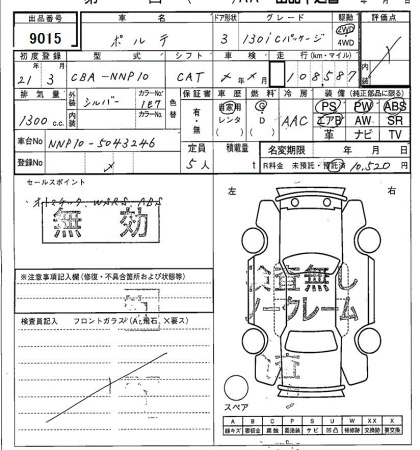 出品番号 車名 ドア形状 グレード 駆動 評価点
9015 ポルテ 3 130i Cパッケージ 2WD 4WD
初度登録 型式 シフト 車検 走行(km・マイル)
21年 3月 CBA-NNP10 CAT 年 月 108587
排気量 外装 シルバー カラーNo. 1E7 色替 車歴 燃料 冷房 装備(純正部品に限る)
1300 c.c. 内装 カラーNo. 保証書 有・無 自家用 レンタ G D AAC PS PW ABS
エアB AW SR
革 ナビ TV
車台No NNP10-5043246 定員 5人 積載量 t 名変期限 年 月 日
登録No R料金 未預託・預託済 10,520円
セールスポイント
オートマチック, W SRS, ABS
無効
左 右
※注意事項記入欄(修復・不具合箇所および状態等)
検査無し
ノークレーム
検査員記入 フロントガラス(A, 飛石, X要ス)
スペア
A B C P S U W X XX
線キズ 要板金 腐蝕 要塗装 サビ 凹凸 補修跡 交換跡 要交換